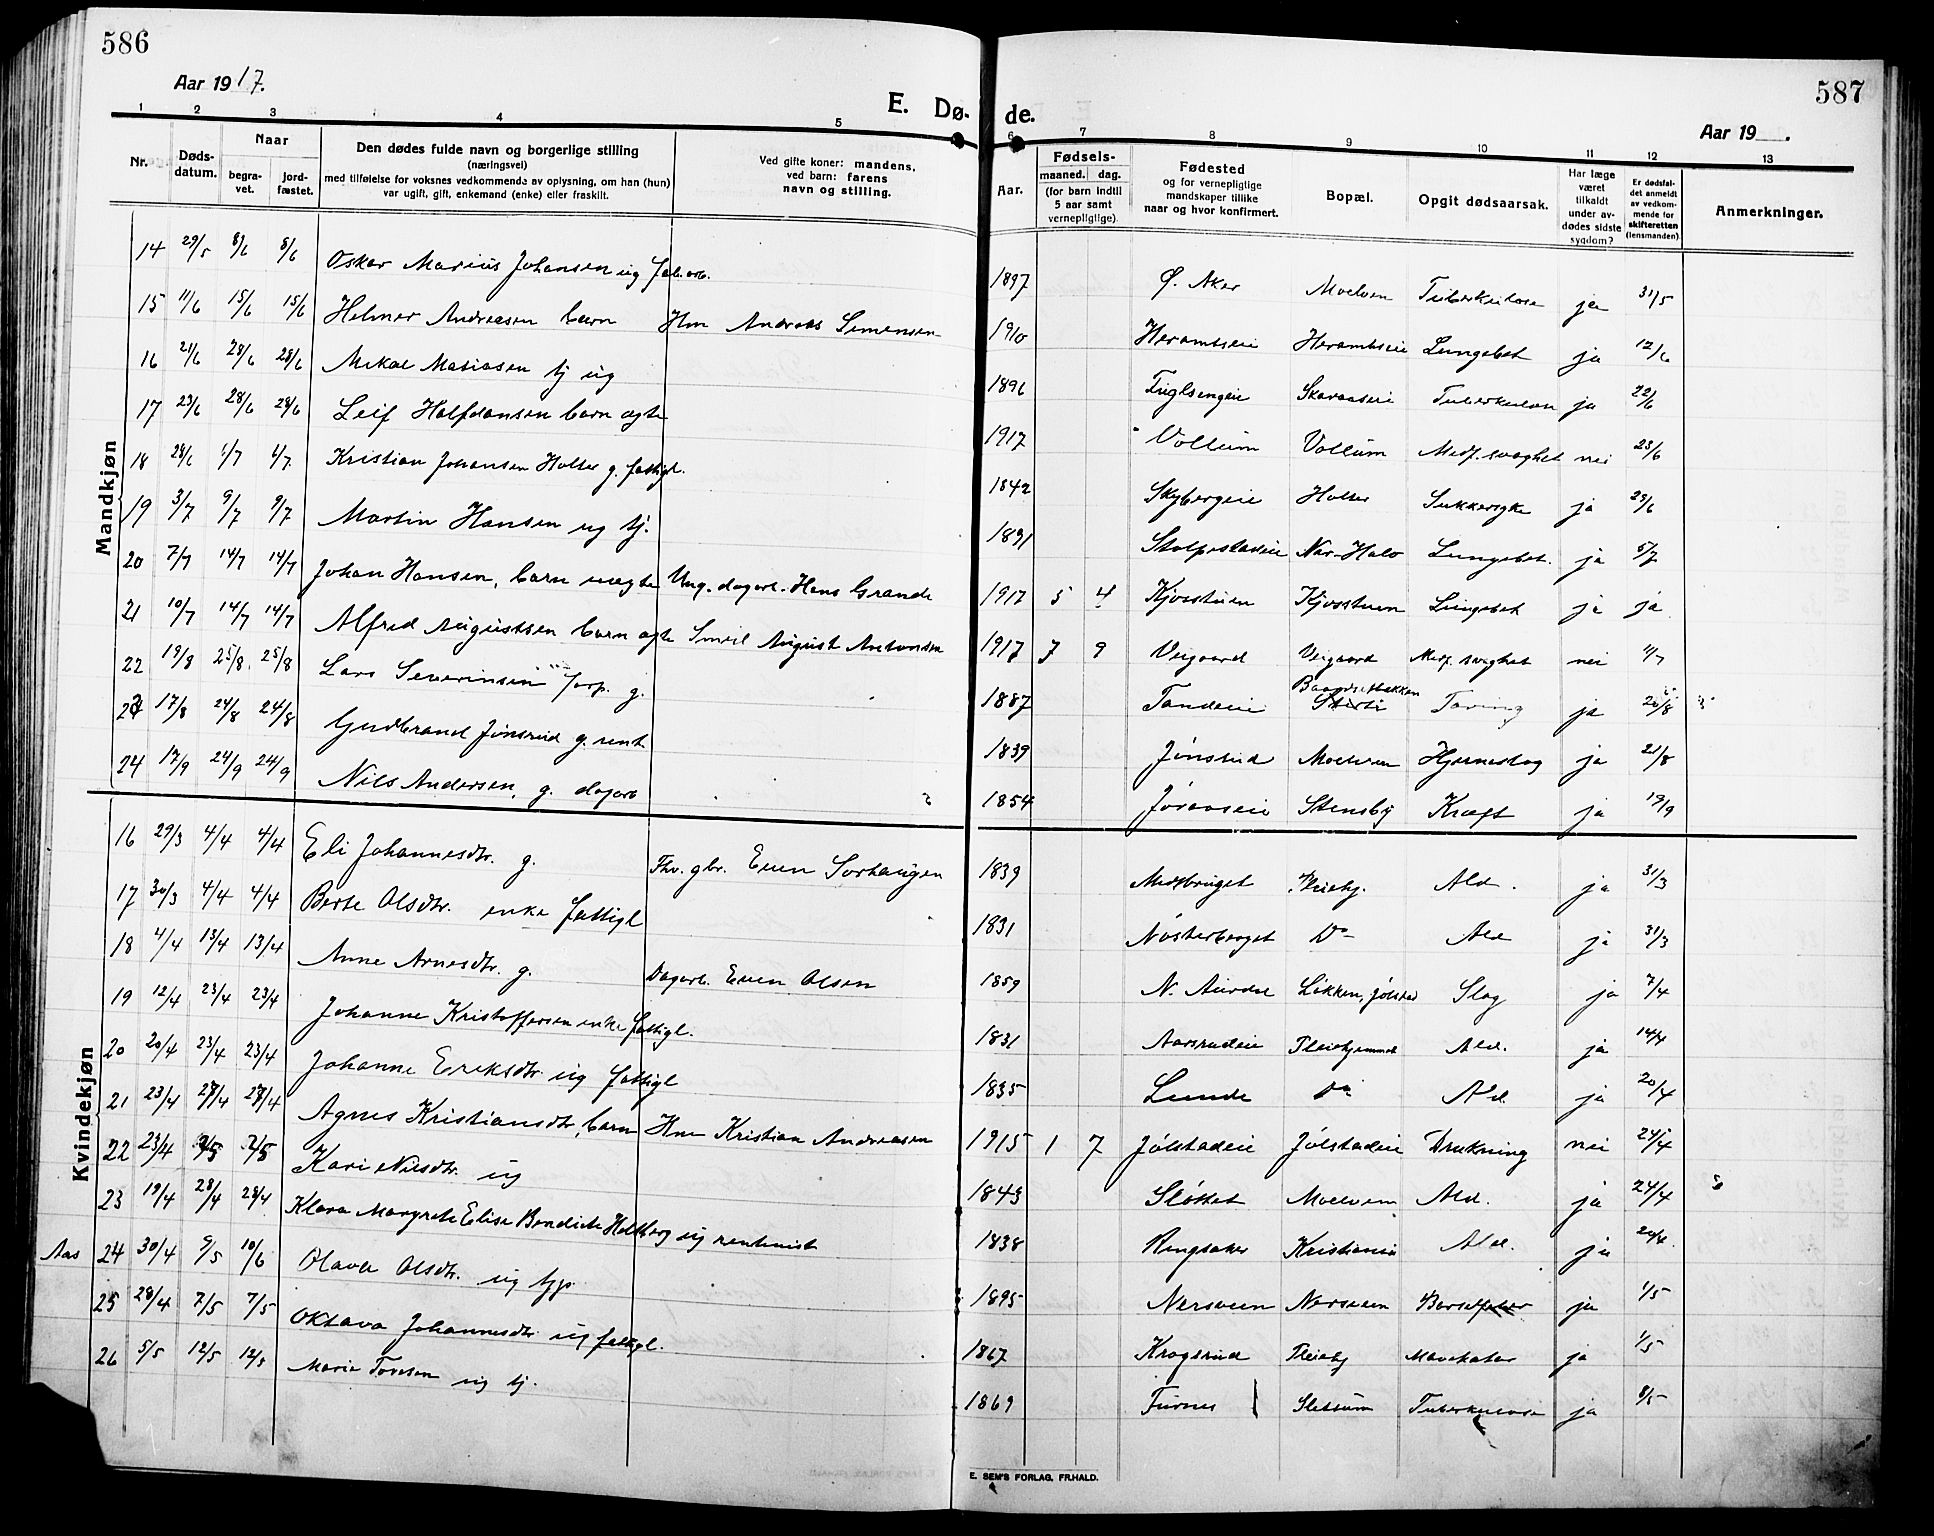 586
587
Aar 1917.
E. Dø- de.
Aar 19 .
1 2 3 4 5 6 7 8 9 10 11 12 13
Nr.
Døds-datum.
Naar
begra-vet.
jord-fæstet.
Den dødes fulde navn og borgerlige stilling
(næringsvei)
med tilføielse for voksnes vedkommende av oplysning, om han (hun)
var ugift, gift, enkemand (enke) eller fraskilt.
Ved gifte koner: mandens,
ved barn: farens
navn og stilling.
Aar.
Fødsels-
maaned. dag.
(for barn indtil
5 aar samt
vernepligtige).
Fødested
og for vernepligtige
mandskaper tillike
naar og hvor konfirmert.
Bopæl.
Opgit dødsaarsak.
Har læge
været
tilkaldt
under av-
dødes sidste
sygdom?
Er dødsfal-
det anmeldt
av vedkom-
mende for
skifteretten
(lensmanden).
Anmerkninger.
Mandkjøn
14 29/5 8/6 8/6 Oskar Marius Johansen ug fab.arb. 1897 Ø. Aker Moelven Tuberkulose ja 31/5
15 11/6 15/6 15/6 Helmer Andreasen barn Hm Andreas Simensen 1910 Heramtseie Heramtseie Lungebet ja 12/6
16 21/6 28/6 28/6 Mikal Masiasen tj ug 1896 Fuglsengeie Skaraaseie Tuberkulose ja 22/6
17 23/6 28/6 28/6 Leif Halfdansen barn ægte 1917 Vollum Vollum Medf. svaghet nei 23/6
18 28/6 1/7 1/7 Kristian Johansen Holter g. fattigl. 1842 Skybergeie Holter Sukkersyke ja 29/6
19 3/7 9/7 9/7 Martin Hansen ug tj. 1891 Stolpestadeie Nor-Halv Lungebet. ja 5/7
20 7/7 14/7 14/7 Johan Hansen, barn uægte Ung. dagarb. Hans Grande 1917 5 4 Kjosstuen Kjosstuen Lungebet ja ja
21 10/7 14/7 14/7 Alfred Augustsen barn ægte Smed August Antonsen 1917 7 9 Veigaard Veigaard Medf. svaghet nei 11/7
22 19/8 25/8 25/8 Lars Severinsen Torp. g. 1887 Tandeie Baardsetbakken Tæring ja 20/8
23 17/8 24/8 24/8 Gudbrand Jønsrud g. rent 1839 Jønsrud Moelven Hjerneslag ja 21/8
24 17/9 24/9 24/9 Nils Andersen, g. dagarb 1854 Jøraaseie Stensby Kræft ja 19/9
Kvindekjøn
16 29/3 4/4 4/4 Eli Johannesdtr. g. Fhv. gbr. Even Sorhaugen 1839 Medsbruget Pleiehj. Ald. ja 31/3
17 30/3 4/4 4/4 Berte Olsdtr. enke fattigl 1831 Nøsterberget Do Ald ja 31/3
18 4/4 13/4 13/4 Anne Arnesdtr. g. Dagarb. Even Olsen 1859 N. Aurdal Løkken, Jølstad Slag ja 7/4
19 12/4 23/4 23/4 Johanne Kristoffersen enke fattigl. 1831 Aasrudeie Pleiehjemmet Ald. ja 14/4
20 20/4 23/4 23/4 Johanne Eriksdtr ug fattigl 1835 Lunde Do Ald. ja 20/4
21 23/4 27/4 27/4 Agnes Kristiansdtr, barn Hm Kristian Andreasen 1915 1 7 Jølstadeie Jølstadeie Drukning nei 24/4
22 23/4 2/5 2/5 Kari Nilsdtr. ug 1843 Sløttet Moelven Ald. ja 24/4
23 19/4 28/4 28/4 Klara Margrete Elise Bendicte Holtberg ug rentenist 1838 Ringsaker Kristiania Ald. ja 20/4
Aas 24 30/4 9/5 10/6 Olava Olsdtr. ug tjp. 1895 Nersveen Nersveen ja 1/5
25 28/4 7/5 7/5 Oktava Johannesdtr ug fattigl. 1867 Krogsrud Pleiehj Mavekatar ja 1/5
26 5/5 12/5 12/5 Marie Tovsen ug tj. 1869 Furnes Slettum Tuberkulose ja 8/5
E. SEM'S FORLAG, FR.HALD.